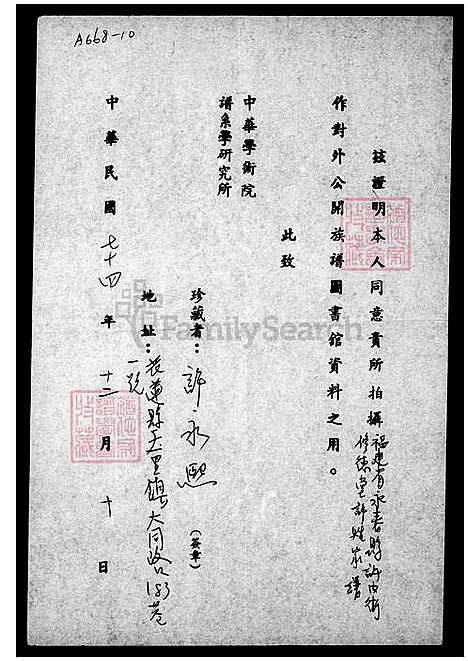 A668-10
茲證明本人同意貴所拍攝福建省永春縣
修德堂許姓家譜
作對外公開族譜圖書館資料之用。
此致
中華學術院
譜系學研究所
珍藏者：許永熙（簽章）
地址：花蓮縣玉里鎮大同路183巷
一號
中華民國七十四年十二月十日
FamilySearch